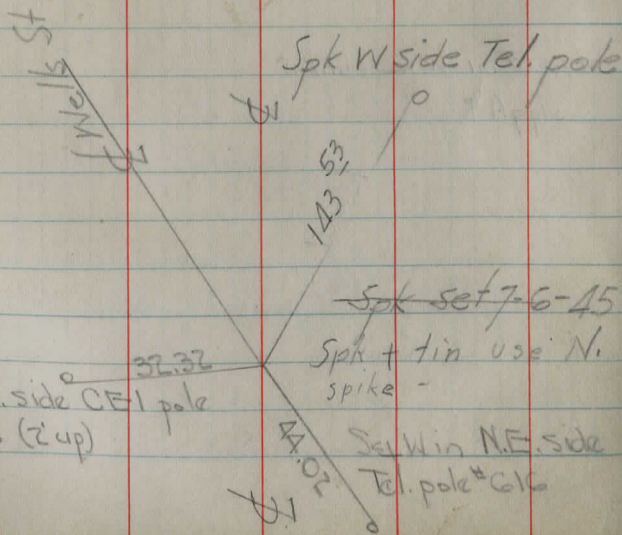 St
Spk W side Tel. pole
143.53
Spk set 7-6-45
Spk + tin use N.
spike -
32.32
side CEI pole
(2' up)
44.02
N.E. side
Tel. pole #616